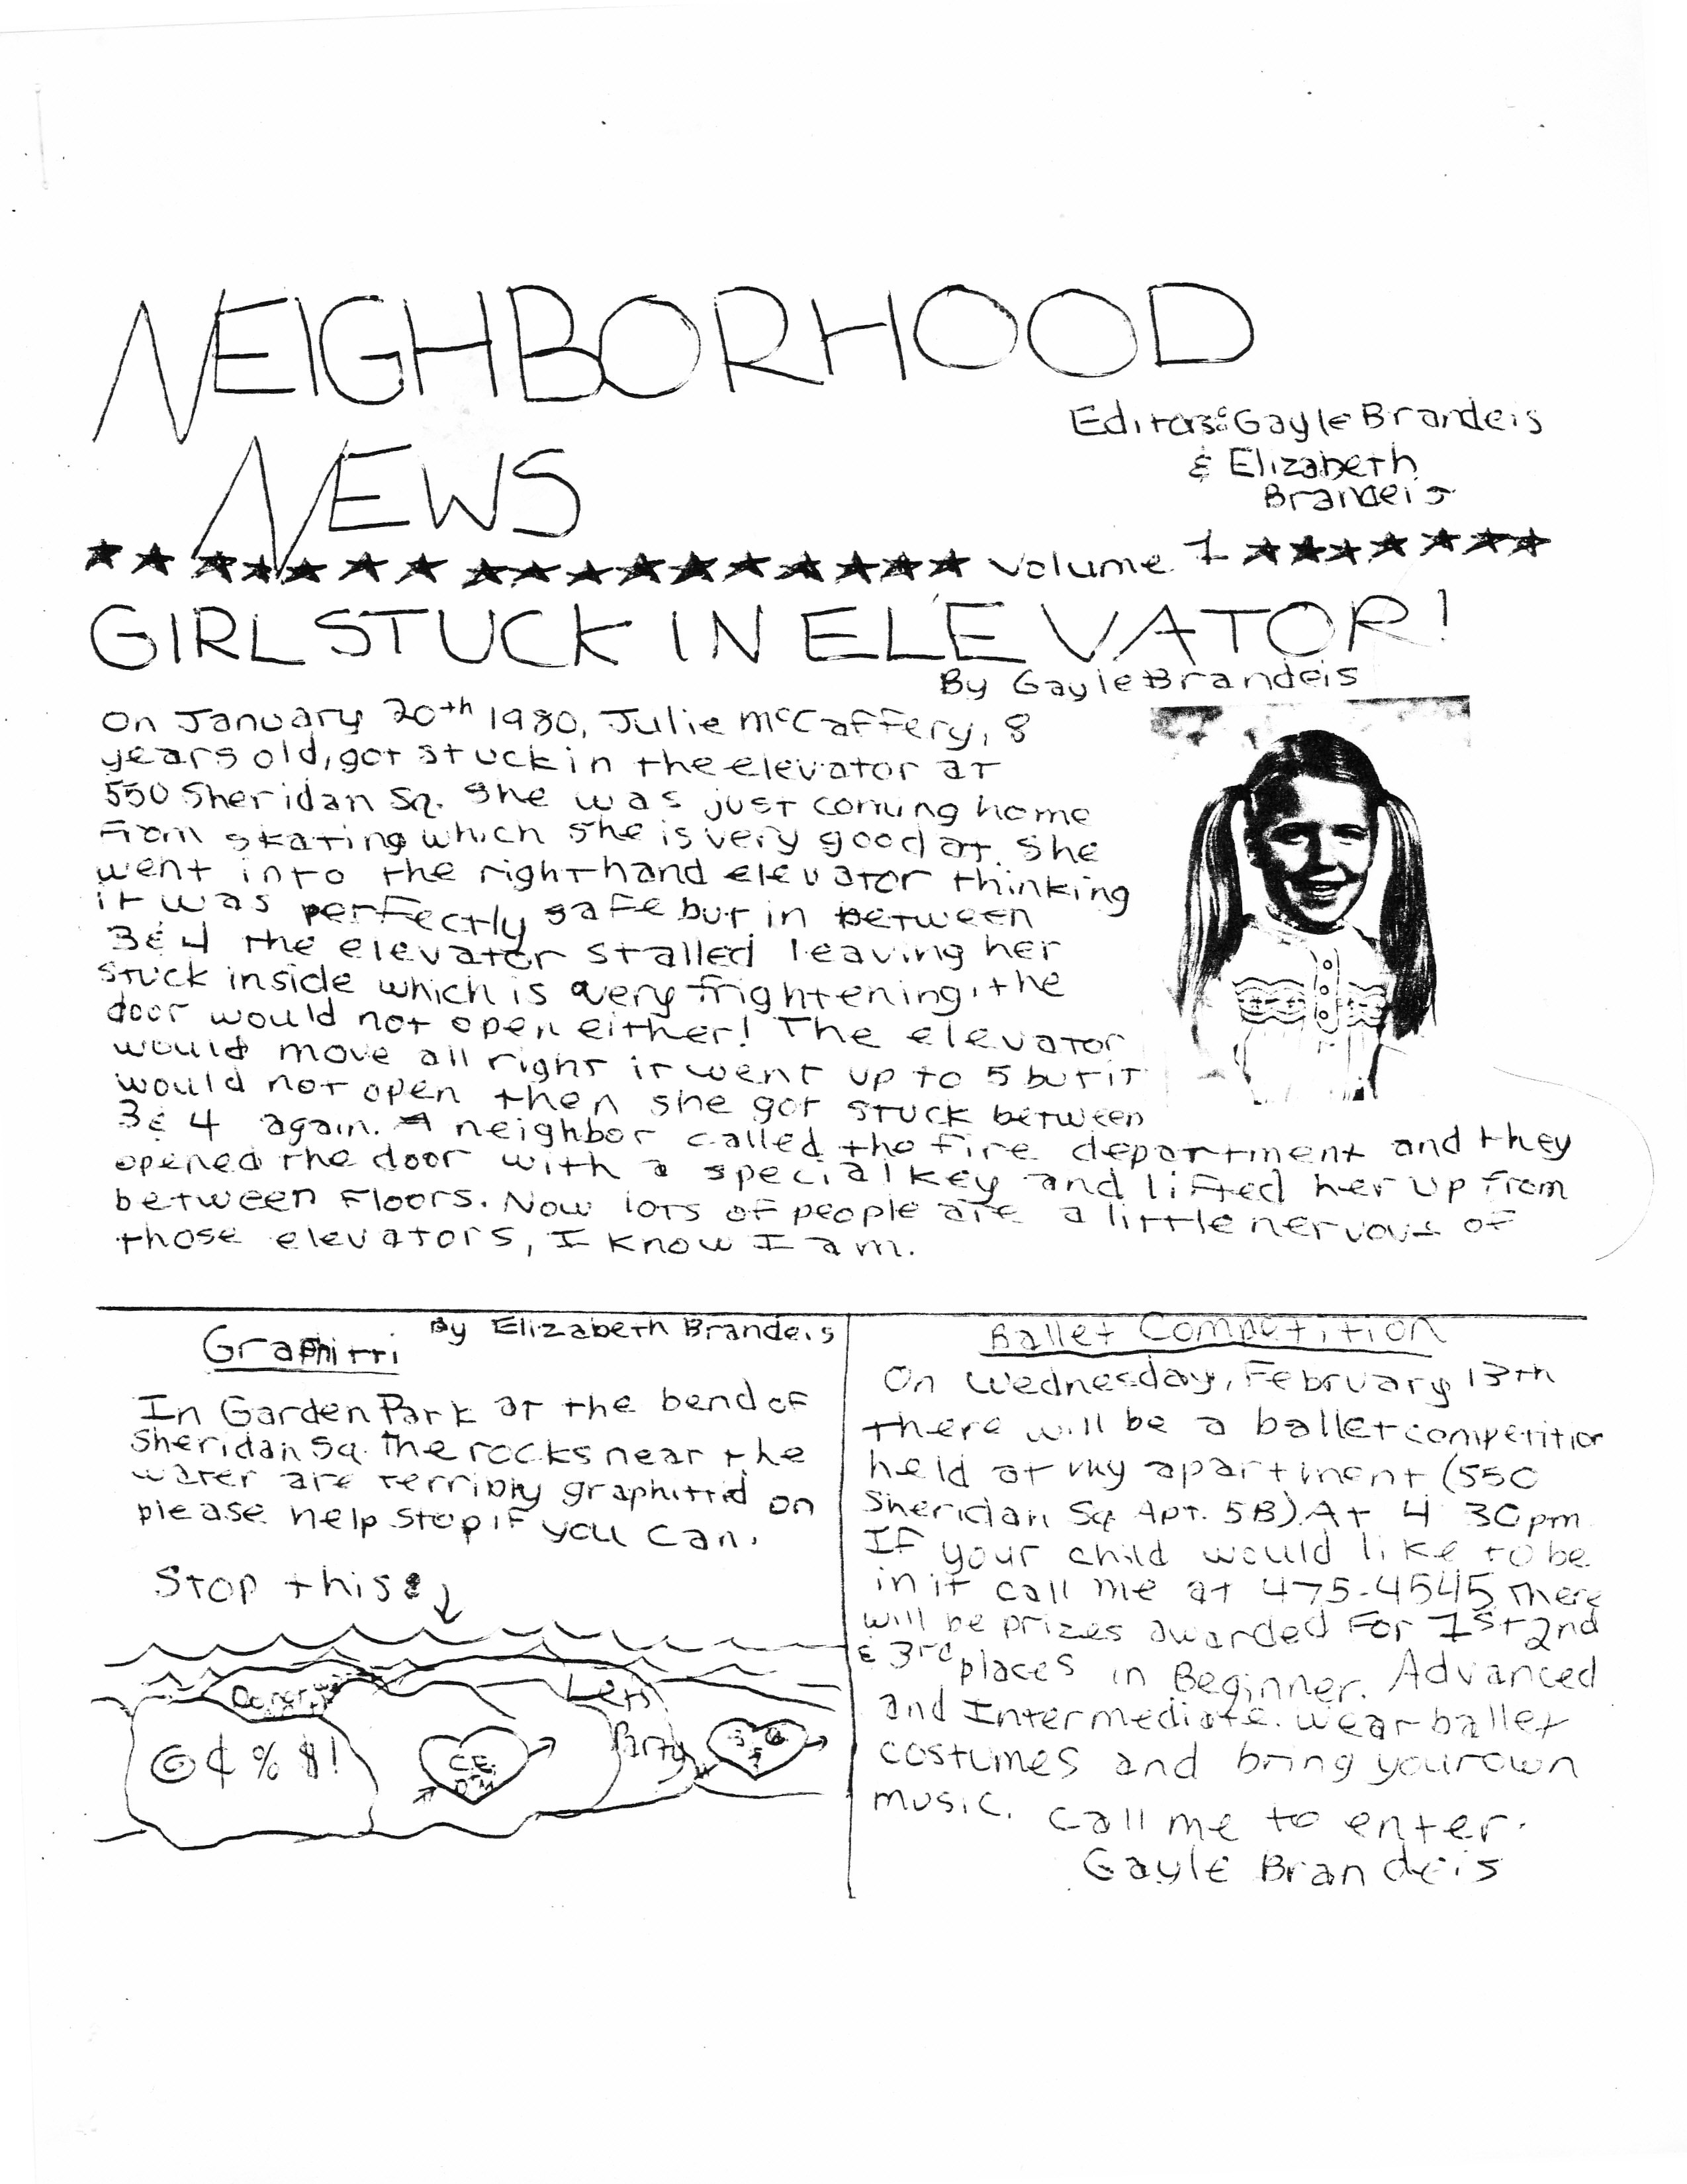 NEIGHBORHOOD
NEWS
Editors: Gayle Brandeis
& Elizabeth
Brandeis
Volume 1
GIRL STUCK IN ELEVATOR!
By Gayle Brandeis
On January 20th 1980, Julie McCaffery, 8
years old, got stuck in the elevator at
550 Sheridan Sq. She was just coming home
From skating which she is very good at. She
went into the right hand elevator thinking
it was perfectly safe but in between
3 & 4 the elevator stalled leaving her
stuck inside which is very frightening, the
door would not open either! The elevator
would move all right it went up to 5 but it
would not open then she got stuck between
3 & 4 again. A neighbor called the fire department and they
opened the door with a special key and lifted her up from
between Floors. Now lots of people are a little nervous of
those elevators, I know I am.
Graphitti
By Elizabeth Brandeis
In Garden Park at the bend of
Sheridan Sq. The rocks near the
water are terribly graphittid on
please help stop if you can.
Stop this!
Lets
Party
@¢%$!
C.E.
Ballet Competition
On Wednesday, February 13th
there will be a ballet competition
held at my apartment (550
Sheridan Sq Apt. 5B). At 4 30pm
If your child would like to be
in it call me at 475-4545 There
will be prizes awarded For 1st 2nd
& 3rd places in Beginner. Advanced
and Intermediate. Wear ballet
costumes and bring your own
music. Call me to enter.
Gayle Brandeis